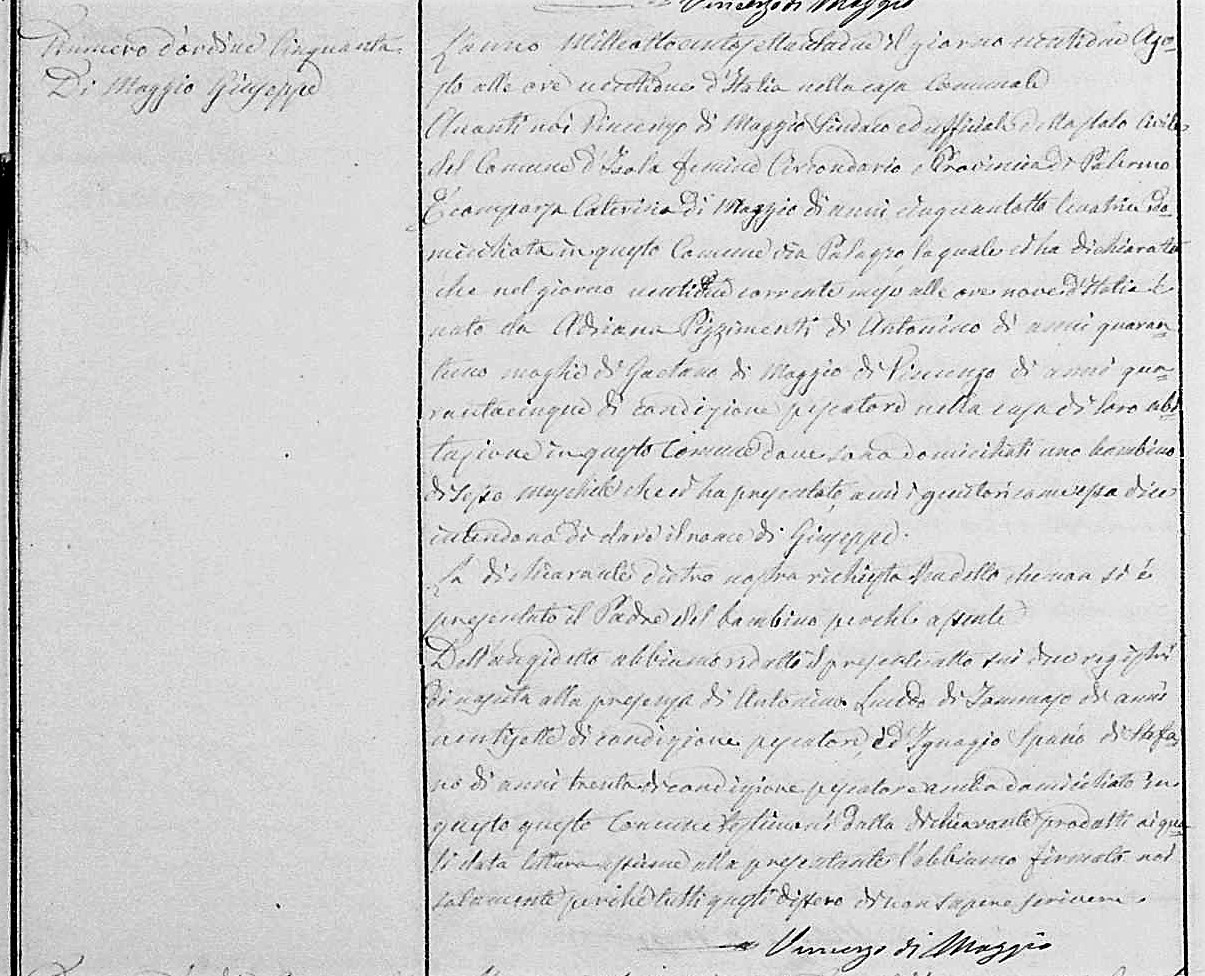 Vincenzo di Maggio
Numero d'ordine Cinquanta.
Di Maggio Giuseppe
L'anno Milleottocentosettantadue il giorno ventidue Ago-
sto alle ore ventidue d'Italia nella casa Comunale
Avanti noi Vincenzo di Maggio Sindaco ed ufficiale dello stato Civile
del Comune d'Isola femine Circondario e Provincia di Palermo
È comparsa Caterina di Maggio di anni cinquantotto levatrice do-
miciliata in questo Comune via Palazzo, la quale ci ha dichiarato
che nel giorno ventidue corrente mese alle ore nove d'Italia è
nato da Adriana Pizzimenti di Antonino di anni quaran
tuno moglie di Gaetano di Maggio di Vincenzo di anni qua-
rantacinque di condizione pescatore nella casa di loro abi
tazione in questo Comune dove sono domiciliati uno bambino
di sesso maschile che ci ha presentato, a cui i genitori come essa dice
intendono di dare il nome di Giuseppe.
La dichiarante dietro nostra richiesta ha detto che non si è
presentato il Padre del bambino perché assente
Dell'anzidetto abbiamo redatto il presente atto sui due registri
di nascita alla presenza di Antonino Lucido di Tommaso di anni
ventisette di condizione pescatore, ed Ignazio Spanò di Stefa
no di anni trenta di condizione pescatore ambo domiciliati in
questo questo Comune testimoni dalla dichiarante prodotti ai qua-
li data lettura assieme alla presentante l'abbiamo firmato noi
solamente perché tutti questi dissero di non sapere scrivere.
Vincenzo di Maggio